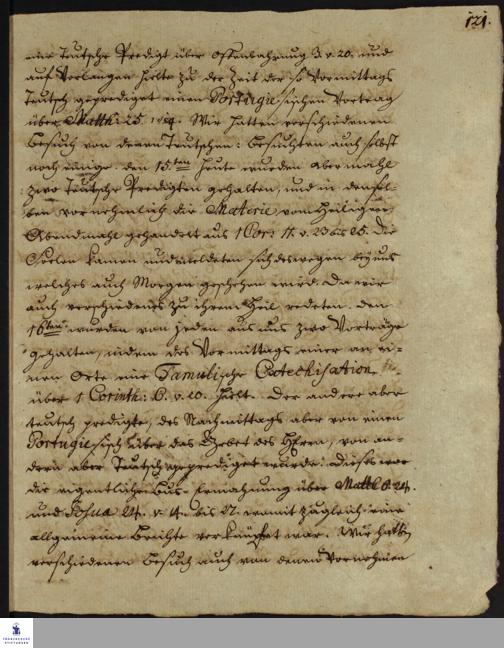 121.
eine Teutsche Predigt über Offenbahrung 3. v. 20. und
auf Verlangen hielte zu der Zeit der so Vormittags
Teutsch geprediget einen Portugiesischen Vortrag
über Matth: 25. Wir hatten verschiedenen
Besuch von denen Teutschen: besuchten auch selbst
noch einige. den 15ten heute wurden abermahls
zwo Teutsche Predigten gehalten, und in densel-
ben vornehmlich die Materie vom Heiligen
Abendmahl gehandelt aus 1 Cor: 11. v. 23 bis 25. Die
Seelen kamen und meldeten sich deswegen bey uns
welches auch Morgen geschehen wird. Da wir
auch verschiedenes zu ihrem Heil redeten. den
16ten wurden von jeden aus uns zwo Vorträge
gehalten, indem des Vormittags einer an ei-
nem Orte eine Tamulische Catechisation
über 1 Corinth: 6. v. 20. hielt. Der andere aber
teutsch predigte, des Nachmittags aber von einem
Portugiesisch über das Gebet des HErrn, von an-
dern aber Teutsch geprediget wurde. Dieses war
die eigentliche Ermahnung über Matth 24.
und Josua 24. v. 14. bis 27. womit zugleich eine
allgemeine Beichte verknüpfet war. Wir hatten
verschiedenen Besuch auch von denen Vornehmen
FRANCKESCHE
STIFTUNGEN